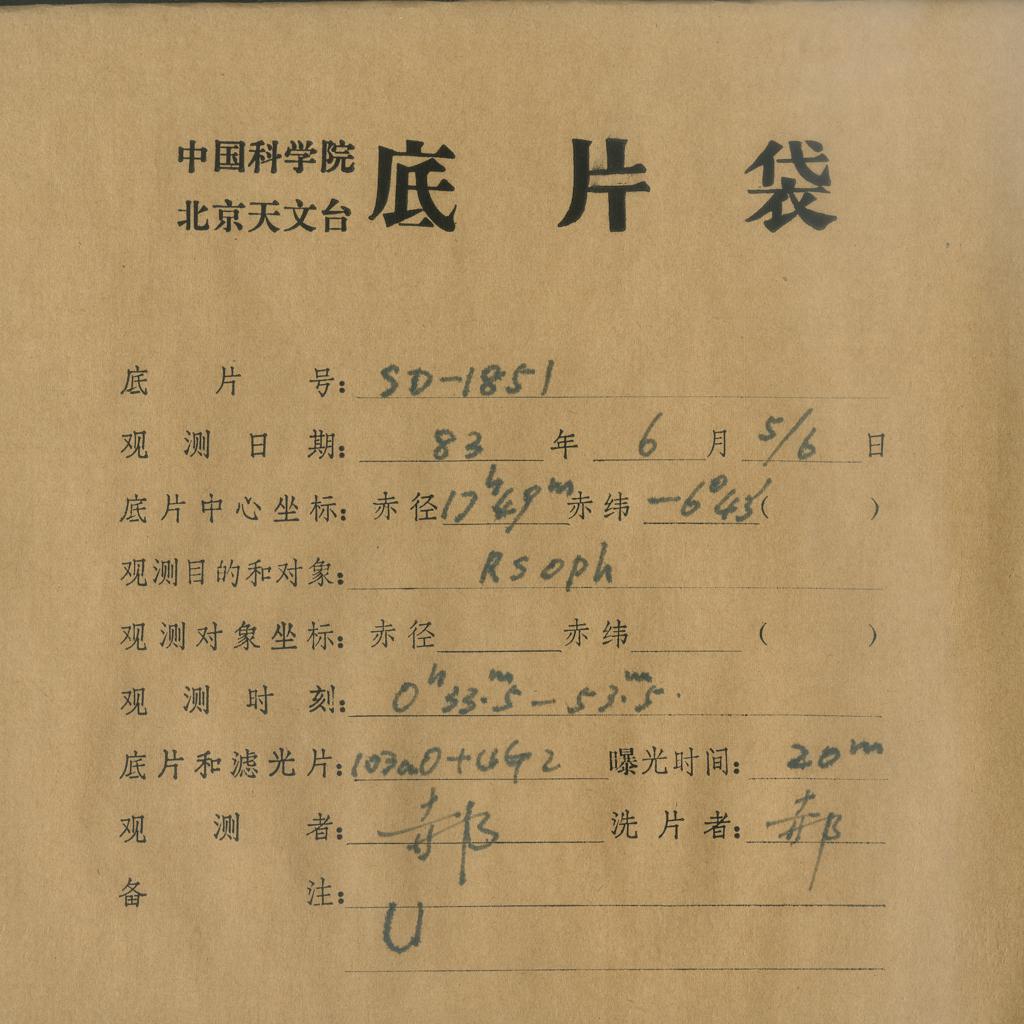 中国科学院
北京天文台
底片袋
底片号: SD-1851
观测日期: 83 年 6 月 5/6 日
底片中心坐标: 赤径 17ʰ49ᵐ 赤纬 -6°43′ ( )
观测目的和对象: RSoph
观测对象坐标: 赤径 赤纬 ( )
观测时刻: 0ʰ33ᵐ.5 - 53ᵐ.5
底片和滤光片: 103aO+UG2 曝光时间: 20ᵐ
观测者: 郝 洗片者: 郝
备注:
U